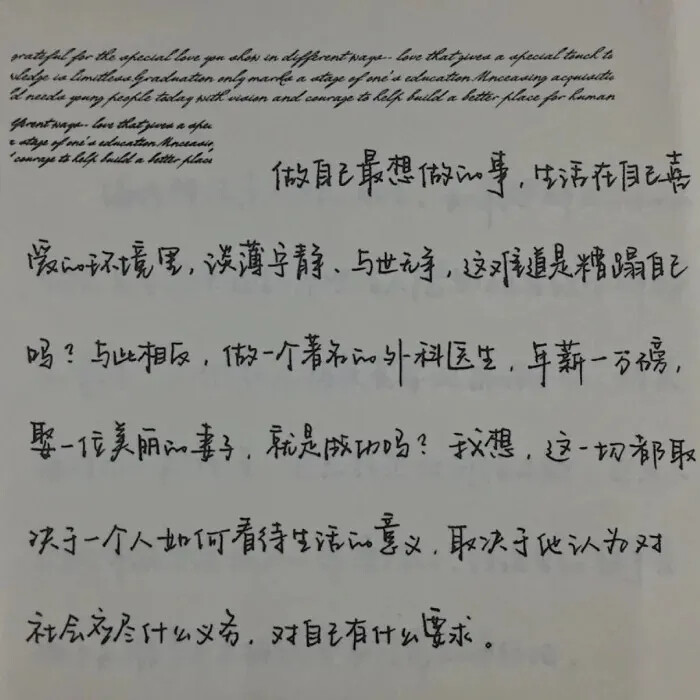 grateful for the special love you show in different ways-- love that gives a special touch to
wledge is limitless.Graduation only marks a stage of one's education.Unceasing acquisitio
ld needs young people today with vision and courage to help build a better place for human
fferent ways-- love that gives a spec
a stage of one's education.Unceasin,
courage to help build a better place
做自己最想做的事,生活在自己喜
爱的环境里,淡薄宁静、与世无争,这难道是糟蹋自己
吗?与此相反,做一个著名的外科医生,年薪一万磅,
娶一位美丽的妻子,就是成功吗?我想,这一切都取
决于一个人如何看待生活的意义,取决于他认为对
社会应尽什么义务,对自己有什么要求。